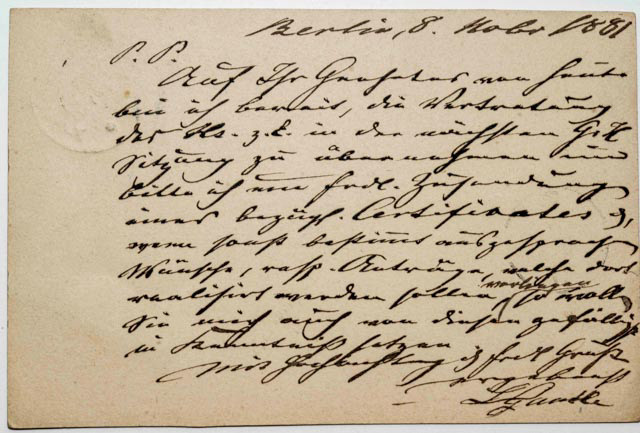 Berlin, 8. Novbr 1881
P. P.
Auf Ihr Geehrtes von heute
bin ich bereit, die Vertretung
des z. E. in der nächsten
Sitzung zu übernehmen und
bitte ich um frdl. Zusendung
eines bezügl. Certifikates &,
wenn sonst bestimmt ausgesproch
Wünsche, resp. Anträge, welche dort
vorliegen
realisirt werden sollen, so woll
Sie mich auch von diesen gefälligst
in Kenntniß setzen
Mit Hochachtung & frdl Gruß
ergebenst